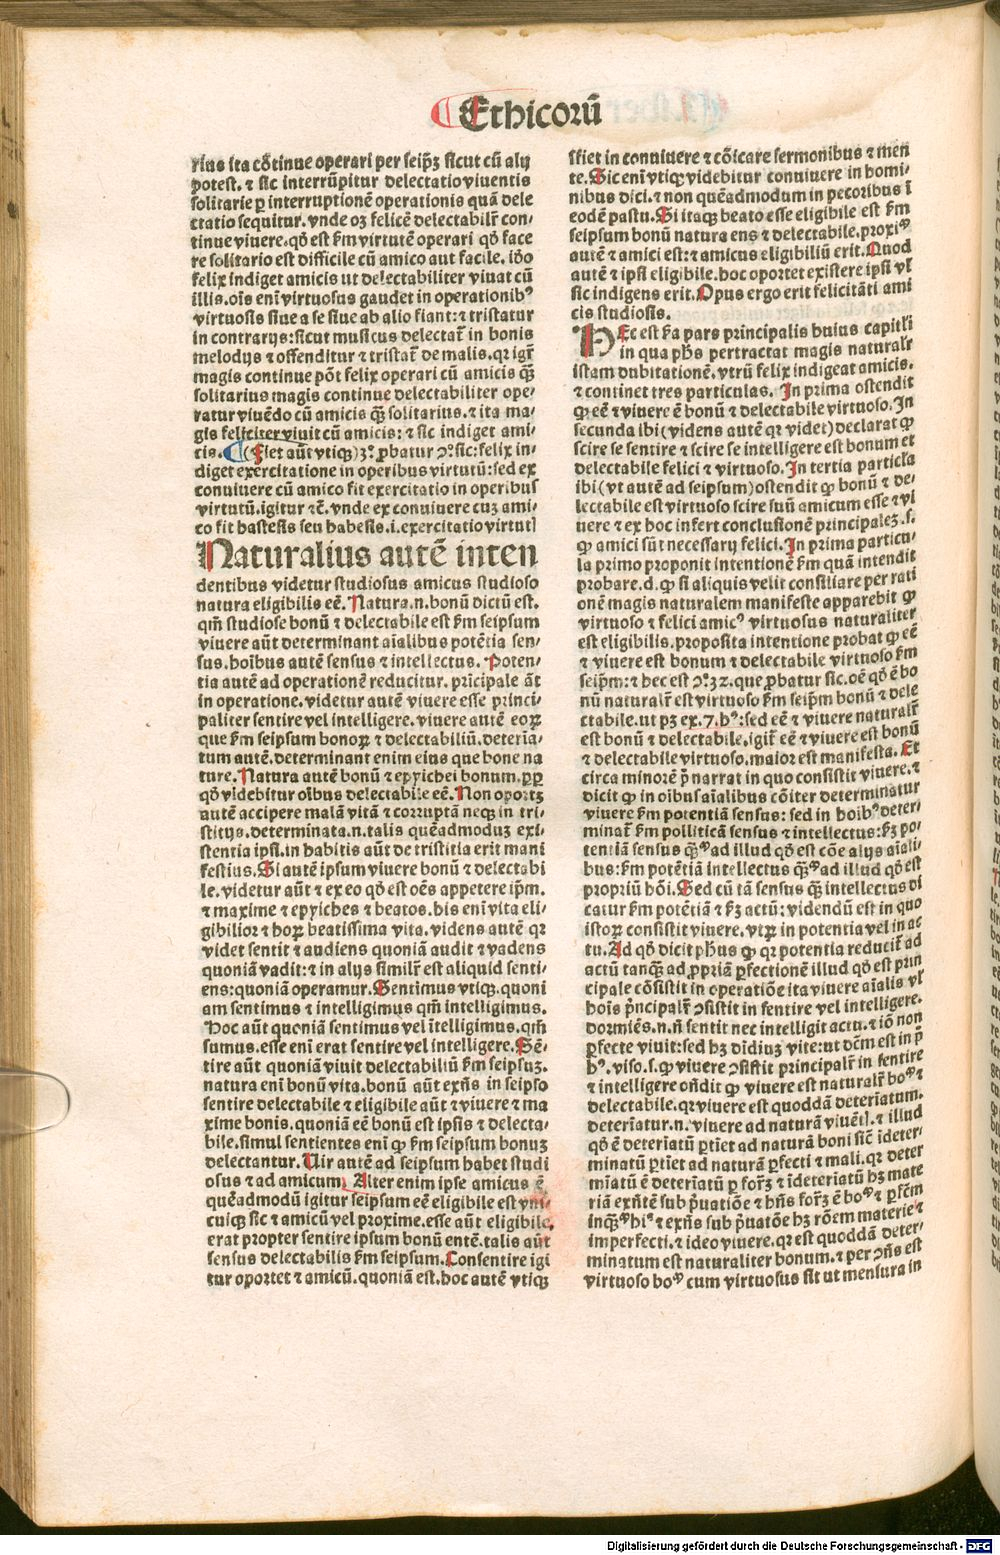 Ethicoꝝ̃
rius ita cõtinue operari per seip̃ꝫ sicut cũ alij
potest. ⁊ sic interrũpitur delectatio viuentis
solitarie ꝑ interruptionẽ operationis quã dele
ctatio sequitur. vnde oꝫ felicẽ delectabilr̃ con⸗
tinue viuere. qđ est fm̃ virtutẽ operari qđ face
re solitario est difficile cũ amico aut facile. iđo
felix indiget amicis ut delectabiliter viuat cũ
illis. oĩs enĩ virtuosus gaudet in operationibꝰ
virtuosis siue a se siue ab alio fiant: ⁊ tristatur
in contrarijs: sicut musicus delectat̃ in bonis
melodijs ⁊ offenditur ⁊ tristat̃ de malis. qꝛ igr̃
magis continue põt felix operari cũ amicis qꝫ̃
solitarius magis continue delectabiliter ope⸗
ratur viuẽdo cũ amicis qꝫ̃ solitarius. ⁊ ita ma⸗
gis feliciter viuit cũ amicis: ⁊ sic indiget ami⸗
cis. (Fiet aũt vtiqꝫ) 3ᵒ. ꝓbatur ꝯᵒ. sic: felix in⸗
diget exercitatione in operibus virtutũ: sed ex
conuiuere cũ amico fit exercitatio in operibus
virtutũ. igitur ⁊c̃. vnde ex conuiuere cuꝫ ami⸗
co fit hastesis seu habesis. i. exercitatio virtut̃
Naturalius autẽ inten
dentibus videtur studiosus amicus studioso
natura eligibilis eẽ. Natura. n. bonũ dictũ est.
qm̃ studiose bonũ ⁊ delectabile est fm̃ seipsum
viuere aũt determinant aĩalibus potẽtia sen⸗
sus. hoĩbus autẽ sensus ⁊ intellectus. Poten⸗
tia autẽ ad operationẽ reducitur. pricipale ãt
in operatione. videtur autẽ viuere esse princi⸗
paliter sentire vel intelligere. viuere autẽ eoꝝ
que fm̃ seipsum bonoꝝ ⁊ delectabiliũ. deterĩa⸗
tum autẽ. determinant enim eius que bone na
ture. Natura autẽ bonũ ⁊ epyichei bonum. ꝓꝑ
qđ videbitur oĩbus delectabile eẽ. Non oportꝫ
autẽ accipere malã vitã ⁊ corruptã neqꝫ in tri⸗
stitijs. determinata. n. talis quẽadmoduꝫ exi⸗
stentia ipsi. in habitis aũt de tristitia erit mani
festius. Si autẽ ipsum viuere bonũ ⁊ delectabi
le. videtur aũt ⁊ ex eo qđ est oẽs appetere ip̃m.
⁊ maxime ⁊ epyiches ⁊ beatos. his enĩ vita eli⸗
gibilior ⁊ hoꝝ beatissima vita. videns autẽ qꝛ
videt sentit ⁊ audiens quoniã audit ⁊ vadens
quoniã vadit: ⁊ in alijs similr̃ est aliquid senti⸗
ens: quoniã operamur. Sentimus vtiqꝫ. quoni
am sentimus ⁊ intelligimus qm̃ intelligimus.
Hoc aũt quoniã sentimus vel ĩtelligimus. qm̃
sumus. esse enĩ erat sentire vel intelligere. Sẽ⸗
tire aũt quoniã viuit delectabiliũ fm̃ seipsuꝫ.
natura enĩ bonũ vita. bonũ aũt exñs in seipso
sentire delectabile ⁊ eligibile aũt ⁊ viuere ⁊ ma
xime bonis. quoniã eẽ bonũ est ipsis ⁊ delecta⸗
bile. simul sentientes enĩ ꝙ fm̃ seipsum bonuꝫ
delectantur. Uir autẽ ad seipsum habet studi
osus ⁊ ad amicum. Alter enim ipse amicus ẽ
quẽadmodũ igitur seipsum eẽ eligibile est vni⸗
cuiqꝫ sic ⁊ amicũ vel proxime. esse aũt eligibile.
erat propter sentire ipsum bonũ entẽ. talis aũt
sensus delectabilis fm̃ seipsum. Consentire igi
tur oportet ⁊ amicũ. quoniã est. hoc autẽ vtiqꝫ
sfiet in conuiuere ⁊ cõicare sermonibus ⁊ men
te. Sic enĩ vtiqꝫ videbitur conuiuere in homi⸗
nibus dici. ⁊ non quẽadmodum in pecoribus ĩ
eodẽ pastu. Si itaqꝫ beato esse eligibile est fm̃
seipsum bonũ natura ens ⁊ delectabile. proxiᵐ
autẽ ⁊ amici est: ⁊ amicus eligibiliũ erit. Quod
autẽ ⁊ ipsi eligibile. hoc oportet existere ipsi vl̃
sic indigens erit. Opus ergo erit felicitãti ami
cis studiosis.
Hec est fa pars principalis huius capitl̃i
in qua ph̃s pertractat magis naturalr̃
istam dubitationẽ. vtrũ felix indigeat amicis.
⁊ continet tres particulas. In prima ostendit
ꝙ eẽ ⁊ viuere ẽ bonũ ⁊ delectabile virtuoso. In
secunda ibi (videns autẽ qꝛ videt) declarat ꝙ
scire se sentire ⁊ scire se intelligere est bonum et
delectabile felici ⁊ virtuoso. In tertia particl̃a
ibi (vt autẽ ad seipsum) ostendit ꝙ bonũ ⁊ de⸗
lectabile est virtuoso scire suũ amicum esse ⁊ vi
uere ⁊ ex hoc infert conclusionẽ principaleꝫ. s.
ꝙ amici sũt necessarij felici. In prima particu⸗
la primo proponit intentionẽ fm̃ quã intendit
probare. d. ꝙ si aliquis velit consiliare per rati
onẽ magis naturalem manifeste apparebit ꝙ
virtuoso ⁊ felici amicꝰ virtuosus naturaliter
est eligibilis. proposita intentione probat ꝙ eẽ
⁊ viuere est bonum ⁊ delectabile virtuoso fm̃
seip̃m: ⁊ hec est ꝯᵒ: 32. que ꝓbatur sic. oẽ qđ ẽ bo
nũ naturalr̃ est virtuoso fm̃ seip̃m bonũ ⁊ dele
ctabile. ut pꝫ ex. 7. hᵒ: sed eẽ ⁊ viuere naturalr̃
est bonũ ⁊ delectabile. igit̃ eẽ ⁊ viuere est bonũ
⁊ delectabile virtuoso. maior est manifesta. Et
circa minorẽ p̃ narrat in quo consistit viuere. ⁊
dicit ꝙ in oĩbus aĩalibus cõiter determinatur
viuere fm̃ potentiã sensus: sed in hoibꝰ deter⸗
minat̃ fm̃ polliticã sensus ⁊ intellectus: fꝫ po⸗
tentiã sensus qꝫ̃ᵐ ad illud qđ est cõe alijs aĩali⸗
bus: fm̃ potẽtiã intellectus qꝫ̃ᵐ ad illud qđ est
propriũ hõi. Sed cũ tã sensus qꝫ̃ intellectus di
catur fm̃ potẽtiã ⁊ fꝫ actũ: videndũ est in quo
istoꝝ consistit viuere. vtꝝ in potentia vel in ac
tu. Ad qđ dicit ph̃us ꝙ qꝛ potentia reducit̃ ad
actũ tanqꝫ̃ ad ꝓpriã ꝑfectionẽ illud qđ est prin
cipale cõsistit in operatiõe ita viuere aĩalis vl̃
hoĩs p̃ncipalr̃ ꝯsistit in sentire vel intelligere.
dormiẽs. n. ñ sentit nec intelligit actu. ⁊ iõ non
ꝑfecte viuit: sed hꝫ dĩdiuꝫ vite: ut dc̃m est in p̃
hᵒ. viso. s. ꝙ viuere ꝯsistit principalr̃ in sentire
⁊ intelligere oñdit ꝙ viuere est naturalr̃ boᵐ ⁊
delectabile. qꝛ viuere est quoddã deteriatum.
deterĩatur. n. viuere ad naturã viuẽt̃. ⁊ illud
qđ ẽ deteriatũ ꝑtĩet ad naturã boni sic̃ ideter⸗
minatũ ꝑtĩet ad naturã ꝑfecti ⁊ mali. qꝛ deter
mĩatũ ẽ deteriatũ ꝑ forꝫ̃ ⁊ ideteriatũ hꝫ mate
riã exñtẽ sub p̃uatiõe ⁊ hñs forꝫ̃ ẽ boᵐ ⁊ ꝑfc̃m
inqꝫ̃ᵐ hiᵒ ⁊ exñs sub p̃uatõe hꝫ rõem materie ⁊
imperfecti. ⁊ ideo viuere. qꝛ est quoddã deter⸗
minatum est naturaliter bonum. ⁊ per ꝯñs est
virtuoso boᵐ cum virtuosus sit ut mensura in
Digitalisierung gefördert durch die Deutsche Forschungsgemeinschaft - DFG